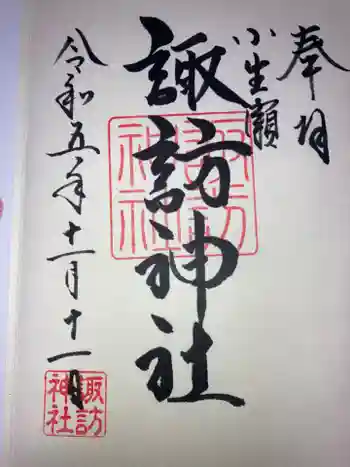 奉拝
小生瀬
諏訪神社
令和五年十一月十一日
諏訪神社
諏訪神社